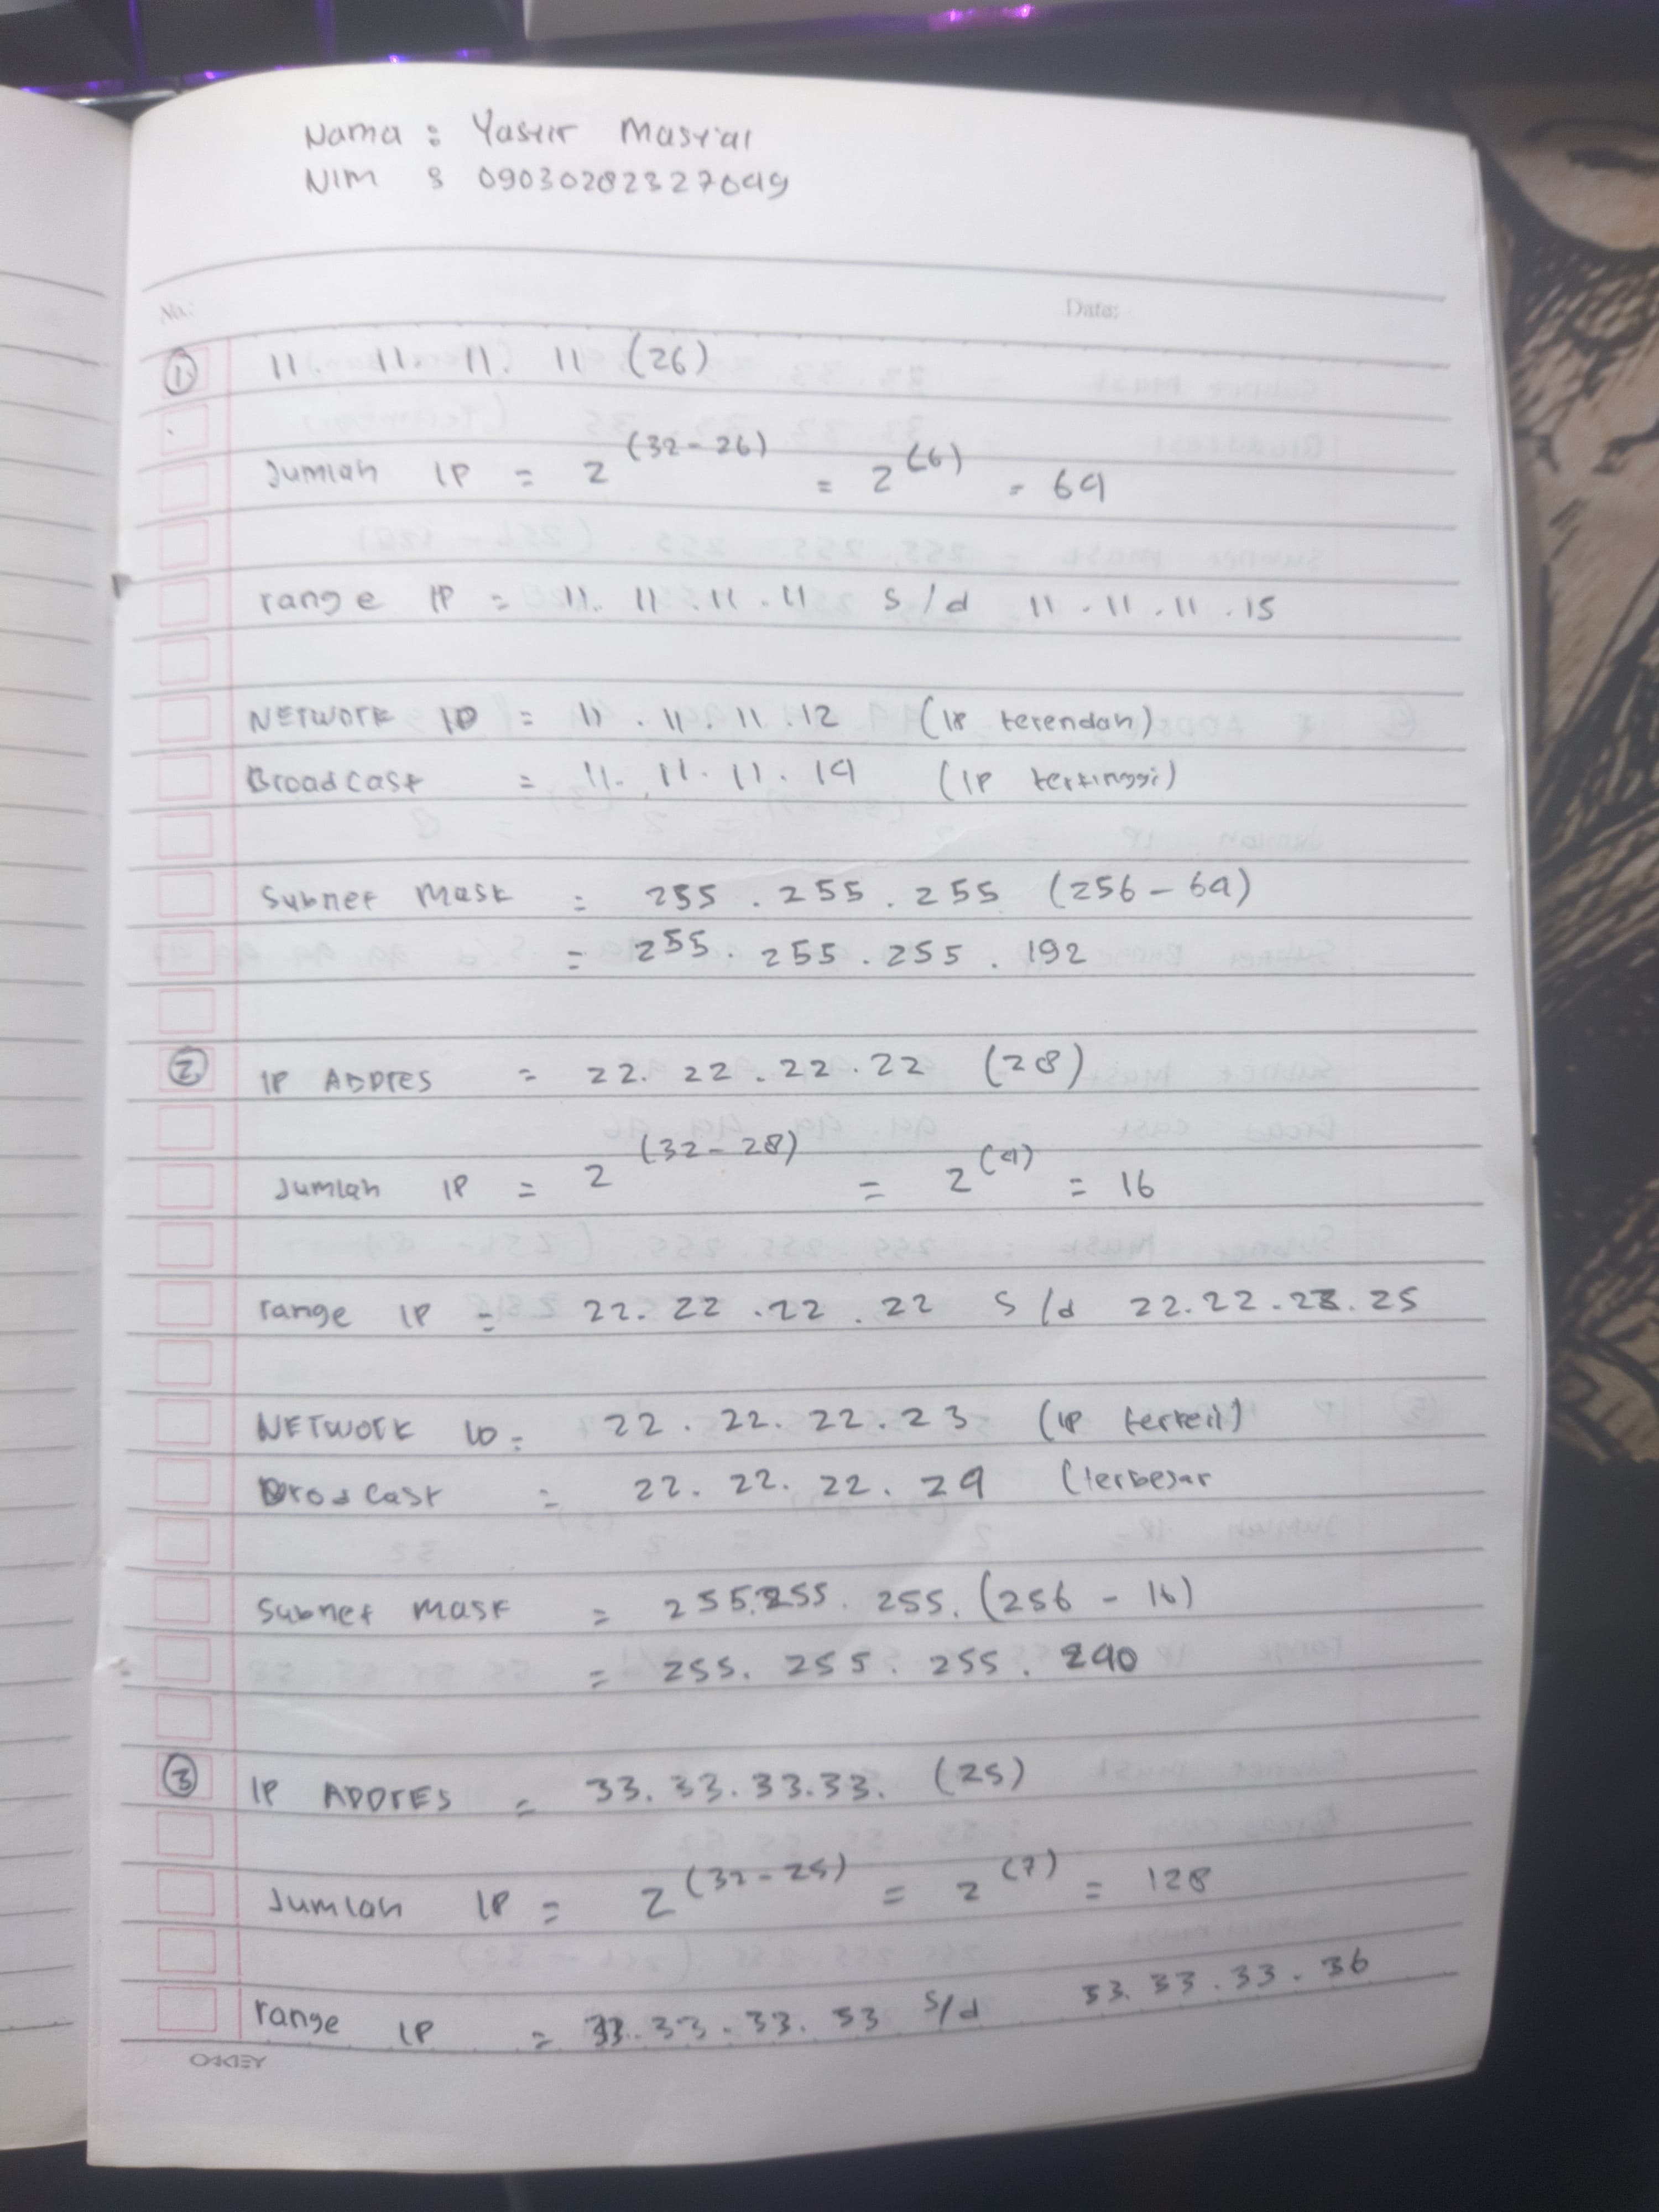 Nama : Yasir Masyal
NIM : 09030282327049
No:
Date:
① 11. 11. 11. 11 (26)
Jumlah IP = 2^(32-26) = 2^(6) = 64
range IP = 11. 11 .11 .11 s/d 11 .11 .11 .15
NETWORK ID = 11 .11 .11 .12 (IP terendah)
Broadcast = 11. 11. 11. 14 (IP tertinggi)
Subnet Mask = 255 .255 .255 (256 - 64)
= 255. 255 .255 .192
② IP ADDRES = 22. 22 .22 .22 (28)
Jumlah IP = 2^(32-28) = 2^(4) = 16
range IP = 22. 22 .22 .22 s/d 22.22.22.25
NETWORK ID = 22 .22. 22 .23 (IP terkeil)
Brodcast = 22. 22. 22. 24 (terbesar
Subnet Mask = 255.255. 255. (256 - 16)
= 255. 255. 255. 240
③ IP ADDRES = 33. 33. 33.33. (25)
Jumlah IP = 2^(32-25) = 2^(7) = 128
range IP = 33. 33. 33. 33 s/d 33. 33. 33. 36
OAKLEY